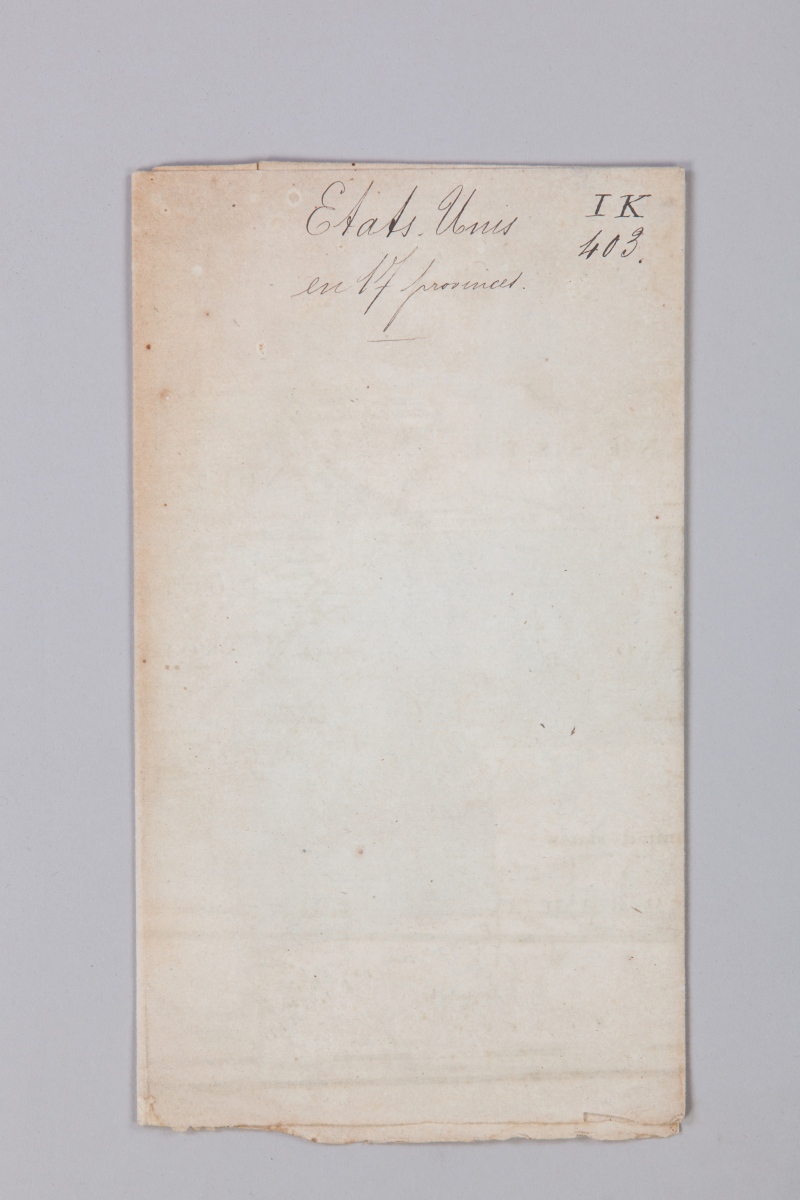 Etats. Unis
en 17 provinces.
I K
403.